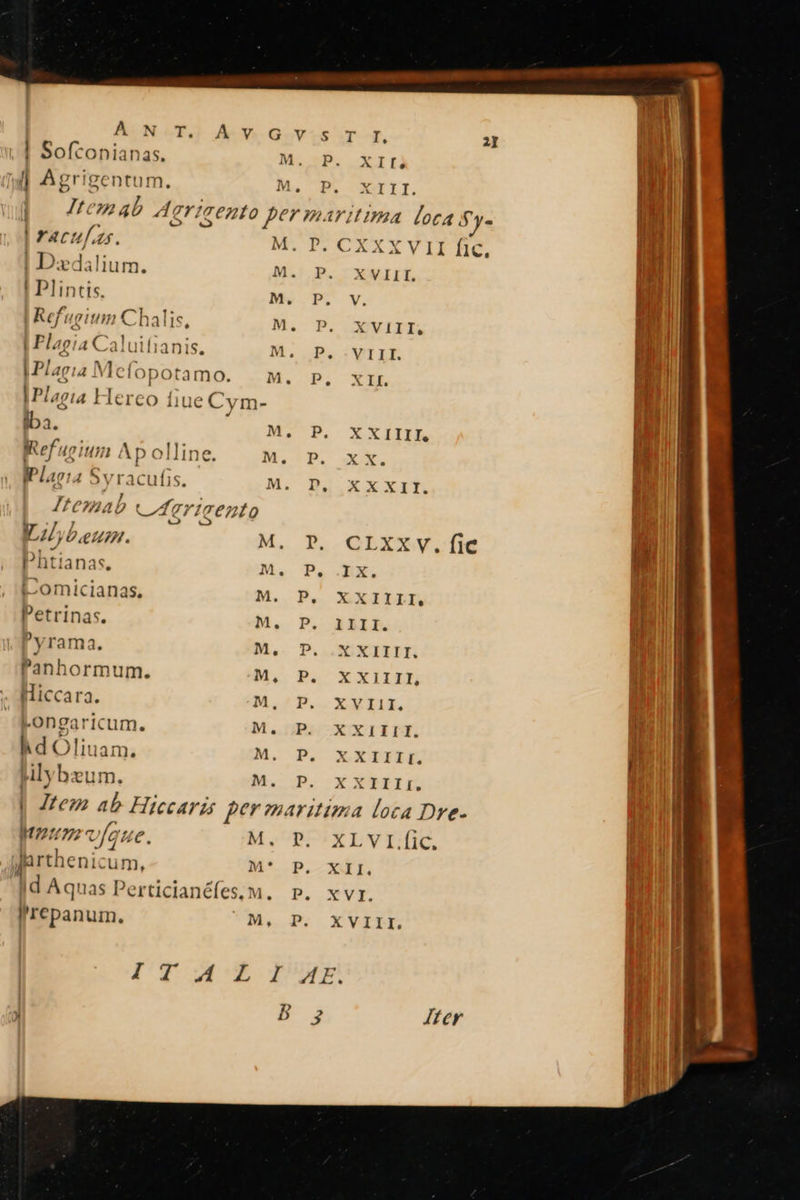 ANT. AVGVSTI. 21
Sofconianas. M. P. XII.
Agrigentum. M. P. XIII.
Item ab Agrigento per maritima loca Sy-
racuſas. M. P. CXXXVII ſic.
Dædalium. M. P. XVIII.
Plintis. M. P. V.
Refugium Chalis, M. P. XVIII,
Plagia Caluiſianis. M. P. VIII.
Plagia Meſopotamo. M. P. XII.
Plagia Hereo ſiue Cym-
ba. M. P. XXIIII.
Refugium Apolline. M. P. XX.
Plagia Syracuſis. M. P. XXXII.
Item ab Agrigento
Lilybæum. M. P. CLXXV. ſic
Phtianas. M. P. IX.
Comicianas. M. P. XXIIII,
Petrinas. M. P. IIII.
Pyrama. M. P. XXIIII.
Panhormum. M. P. XXIIII,
Hiccara. M. P. XVIII.
Longaricum. M. P. XXIIII.
Ad Oliuam. M. P. XXIIII.
Lilybæum. M. P. XXIIII.
Item ab Hiccaris per maritima loca Dre-
panum vſque. M. P. XLVI. ſic.
Parthenicum, M. P. XII.
Ad Aquas Perticianéſes, M. P. XVI.
Drepanum. M. P. XVIII.
ITALIAE.
B 3 Iter